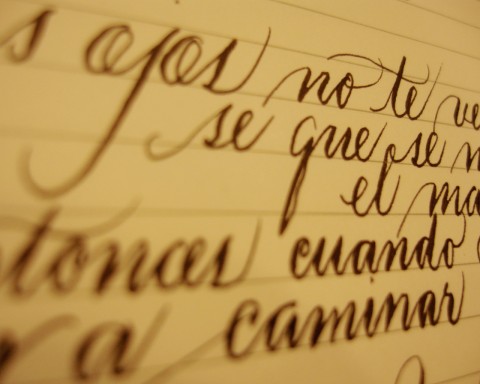 s ojos no te ve
se que se n
el ma
tonces cuando
r a caminar